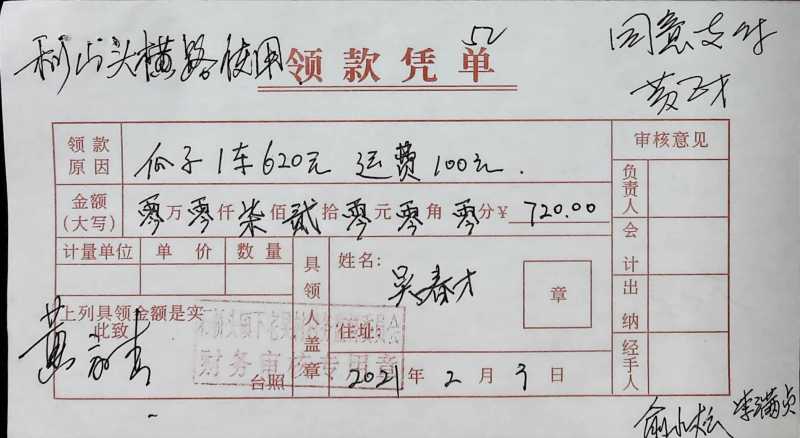 头横路使用
52
同意支付
领款凭单
领款原因 瓜子1车620元 运费100元.
审核意见
金额(大写) 零万零仟柒佰贰拾零元零角零分¥ 720.00
负责人
计量单位 单价 数量
具领人盖章
姓名: 吴春才
章
会计
上列具领金额是实
此致
住址:
出纳
财务审核专用章
台照
2021年2月9日
经手人
李满贞